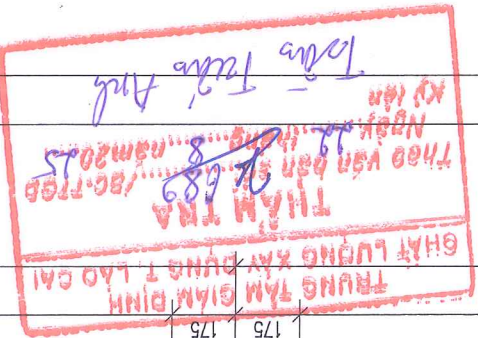 TRUNG TÂM GIÁM ĐỊNH
CHẤT LƯỢNG XÂY DỰNG T. LÀO CAI
THẨM TRA
Theo văn bản số 689 /BC.TTGĐ
Ngày 22 tháng 8 năm 2025
Ký tên
Trần Tuấn Anh
175
175